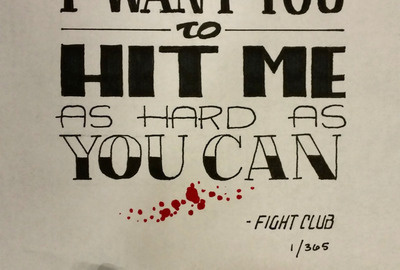 I WANT YOU
TO
HIT ME
AS HARD AS
YOU CAN
- FIGHT CLUB
1/365